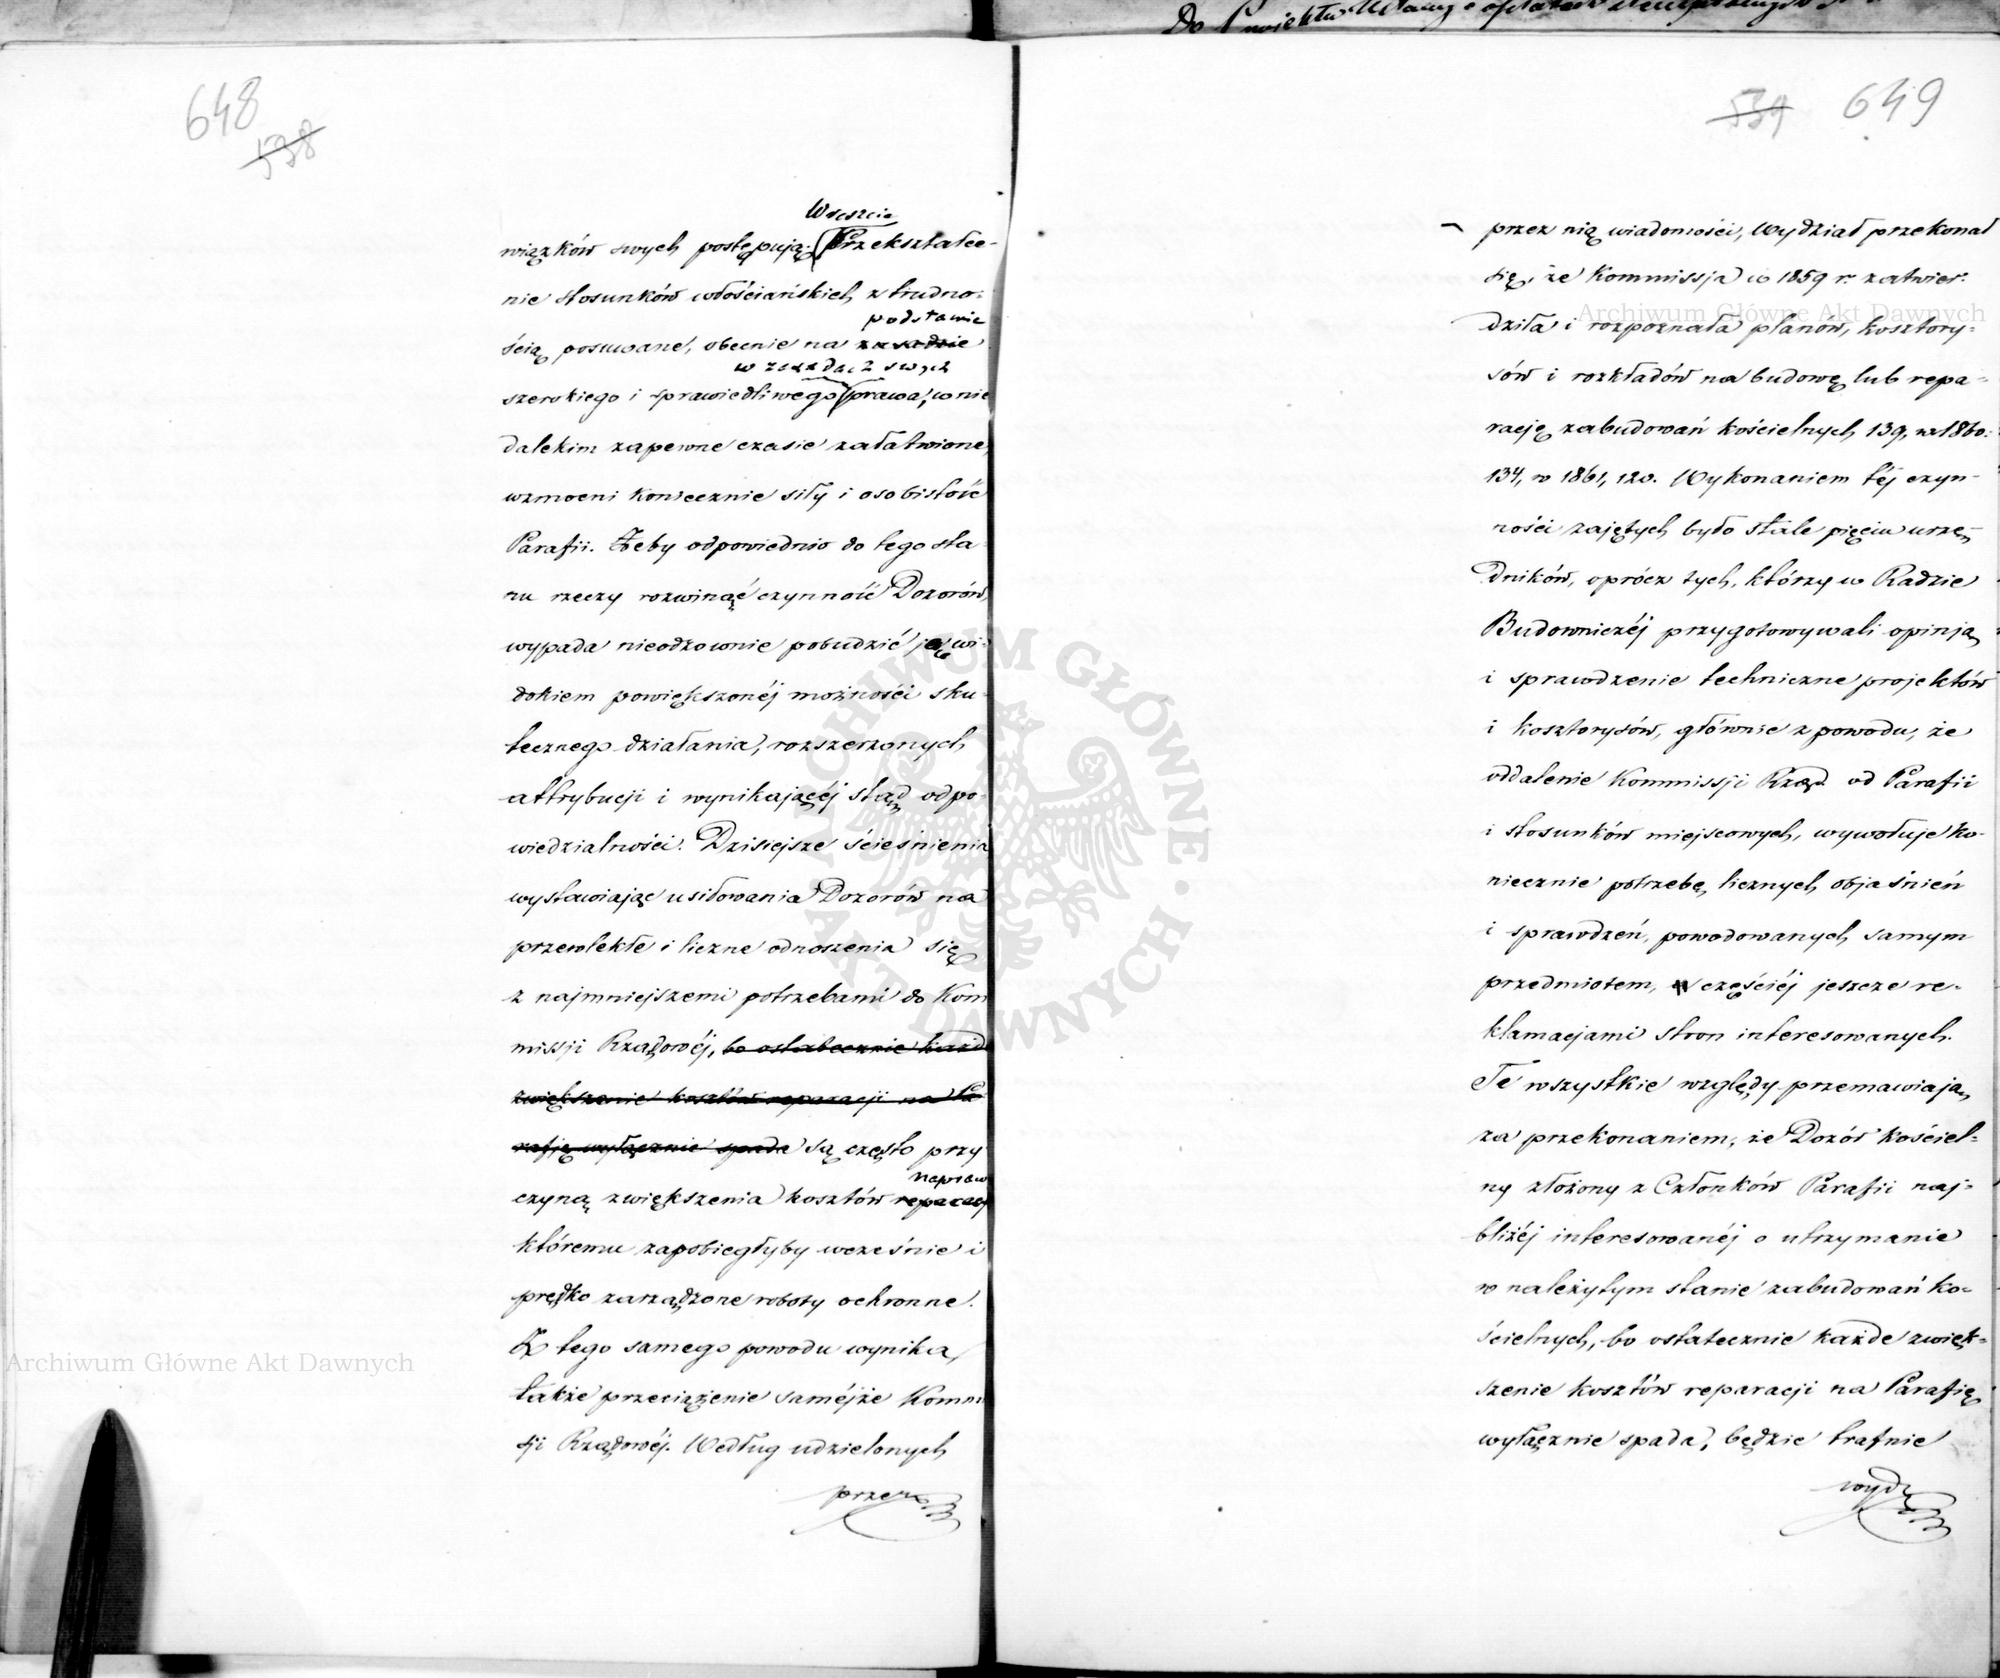 Do Projektu Ustawy o opłatach stemplowych
648
538
Wreszcie
wiązków swych postępują. Przekształce-
nie stosunków włościańskich z trudno-
podstawie
ścią posuwane, obecnie na zasadzie
w zasadach swych
szerokiego i sprawiedliwego prawa, w nie
dalekim zapewne czasie załatwione,
wzmocni koniecznie siły i osobistość
Parafii. Żeby odpowiednio do tego sta-
nu rzeczy rozwinąć czynność Dozorów,
wypada nieodzownie pobudzić je wi-
dokiem powiększonéj możności sku-
tecznego działania, rozszerzonych
attrybucji i wynikającéj stąd odpo-
wiedzialności. Dzisiejsze ścieśnienia
wystawiając usiłowania Dozorów na
przewlekłe i liczne odnoszenia się
z najmniejszemi potrzebami do Kom
missji Rządowéj, bo ostatecznie każde
zwiększenie kosztów reparacji na Pa-
rafję wyłącznie spada są często przy
napraw
czyną zwiększenia kosztów reparacji
któremu zapobiegłyby wcześnie i
prędko zarządzone roboty ochronne.
Z tego samego powodu wynika,
także przeciążenie saméjże Kommi
sji Rządowéj. Według udzielonych
przez
539
649
przez nią wiadomości, Wydział przekonał
się, że Kommissja w 1859 r. zatwier-
dziła i rozpoznała planów, kosztory-
sów i rozkładów na budowę lub repa-
rację zabudowań kościelnych 139, w 1860.
134, w 1861, 120. Wykonaniem téj czyn-
ności zajętych było stale pięciu urzę-
dników, oprócz tych, którzy w Radzie
Budowniczéj przygotowywali opinją
i sprawdzenie techniczne projektów
i kosztorysów, głównie z powodu, że
oddalenie Kommissji Rząd. od Parafii
i stosunków miejscowych, wywołuje ko-
niecznie potrzebę licznych objaśnień
i sprawdzeń, powodowanych samym
przedmiotem, częściéj jeszcze re-
klamacjami stron interesowanych.
Te wszystkie względy przemawiają
za przekonaniem, że Dozór kościel-
ny złożony z Członków Parafii naj-
bliżéj interesowanéj o utrzymanie
w należytym stanie zabudowań ko-
ścielnych, bo ostatecznie każde zwięk-
szenie kosztów reparacji na Parafię
wyłącznie spada, będzie trafnie
wydz
Archiwum Główne Akt Dawnych
Archiwum Główne Akt Dawnych
ARCHIWUM GŁÓWNE AKT DAWNYCH